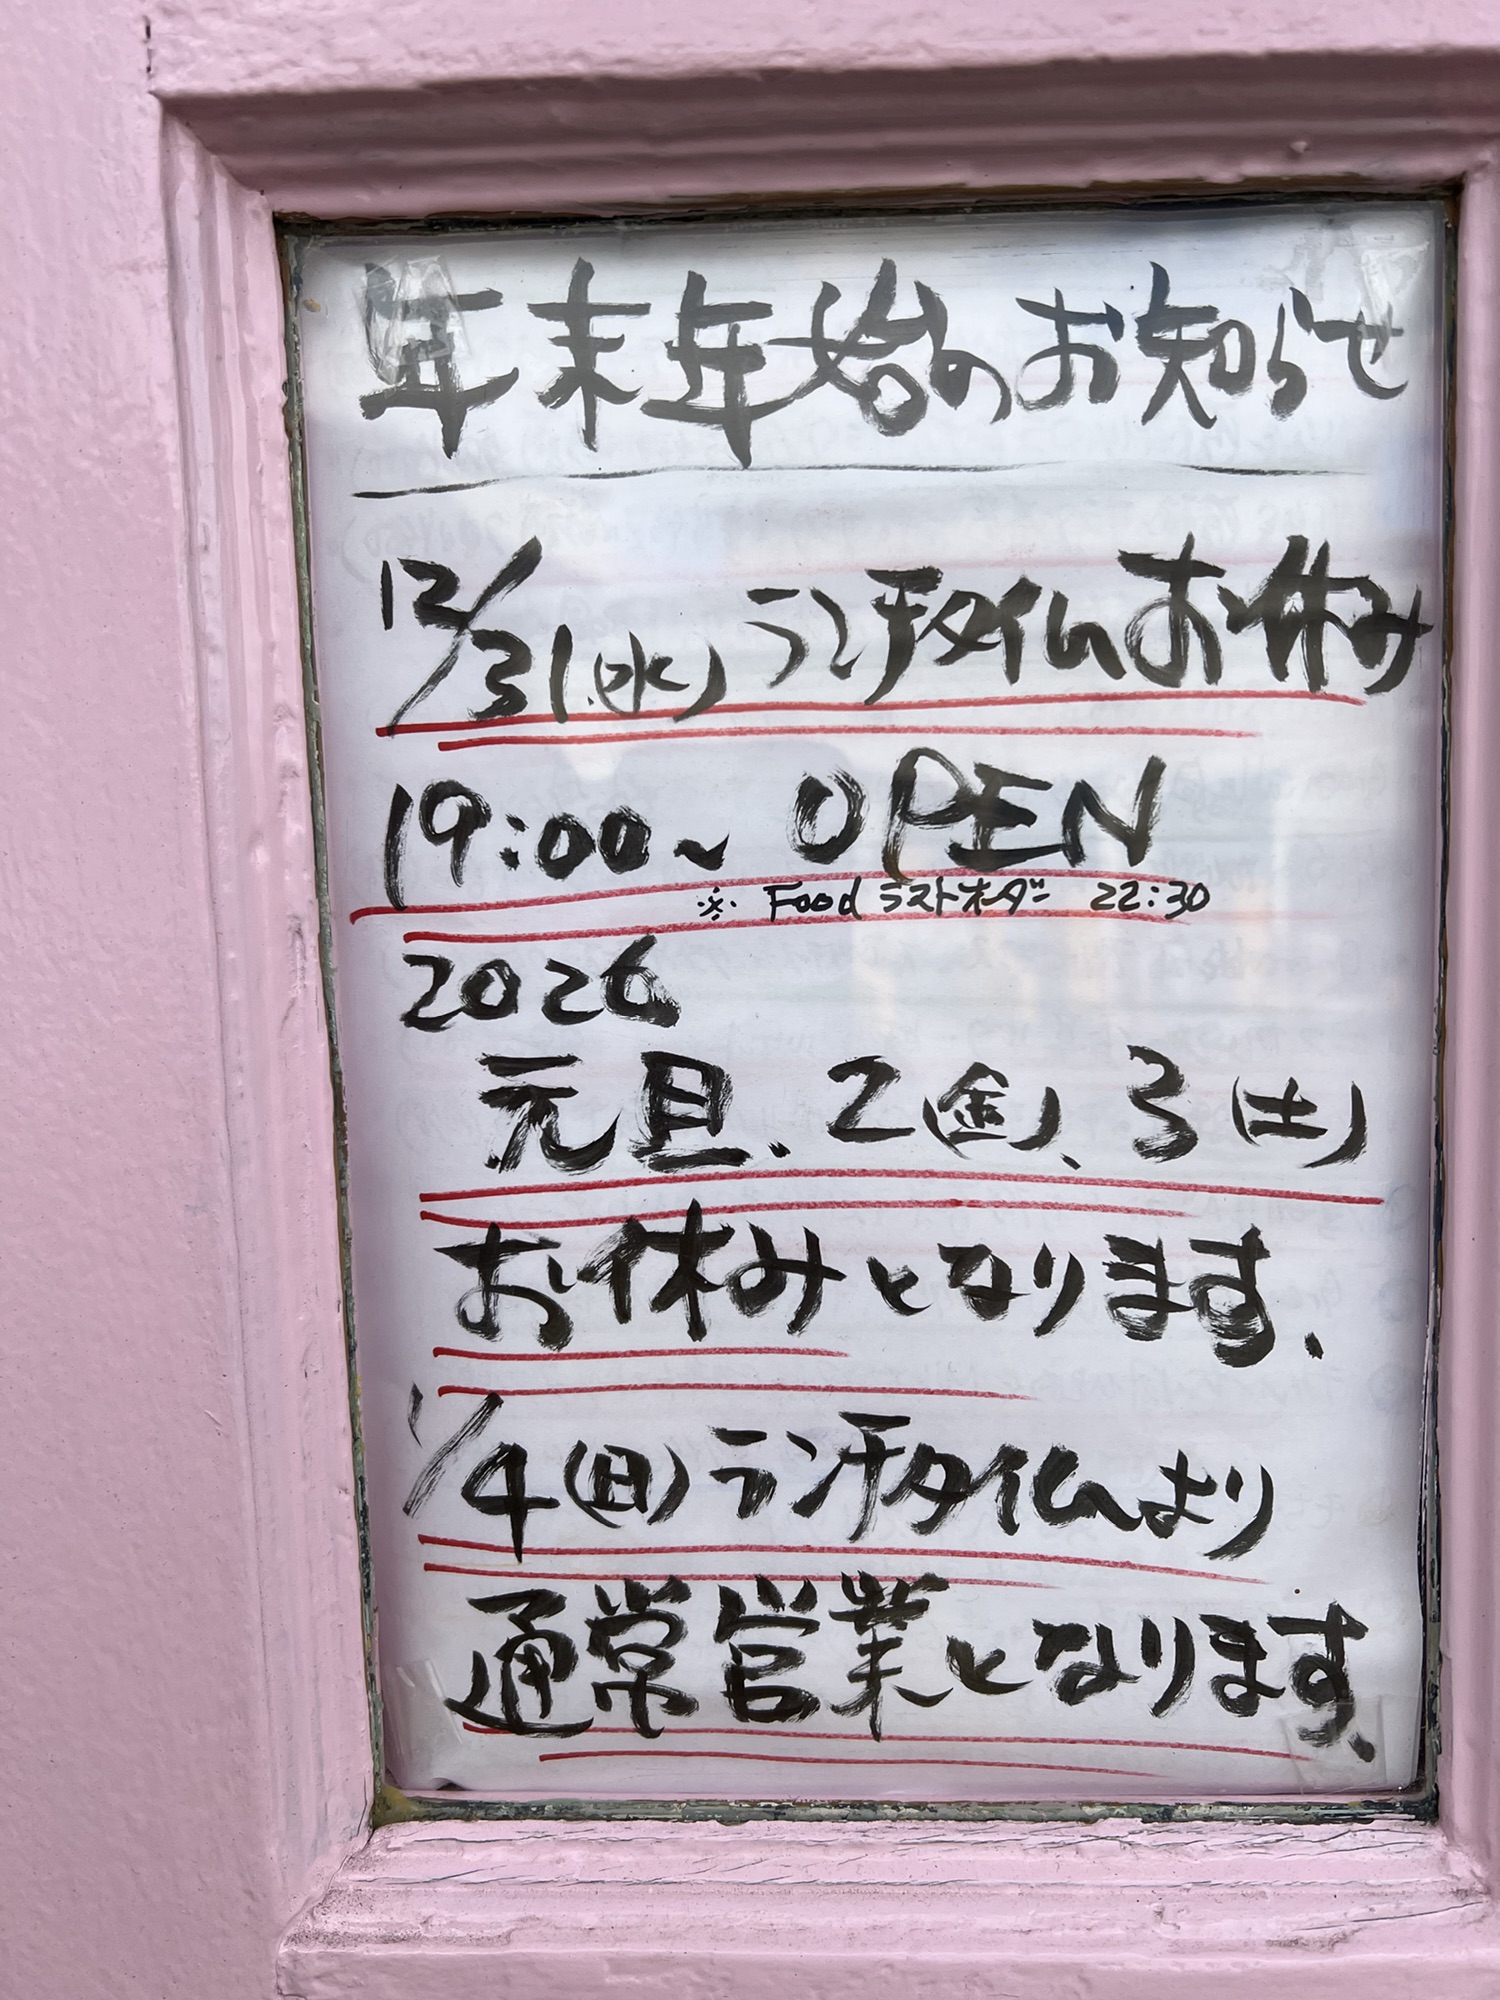 年末年始のお知らせ
12/31(水) ランチタイムお休み
19:00～ OPEN
※ Food ラストオーダー 22:30
2026
元旦、2(金)、3(土)
お休みとなります、
1/4(日)ランチタイムより
通常営業となります、